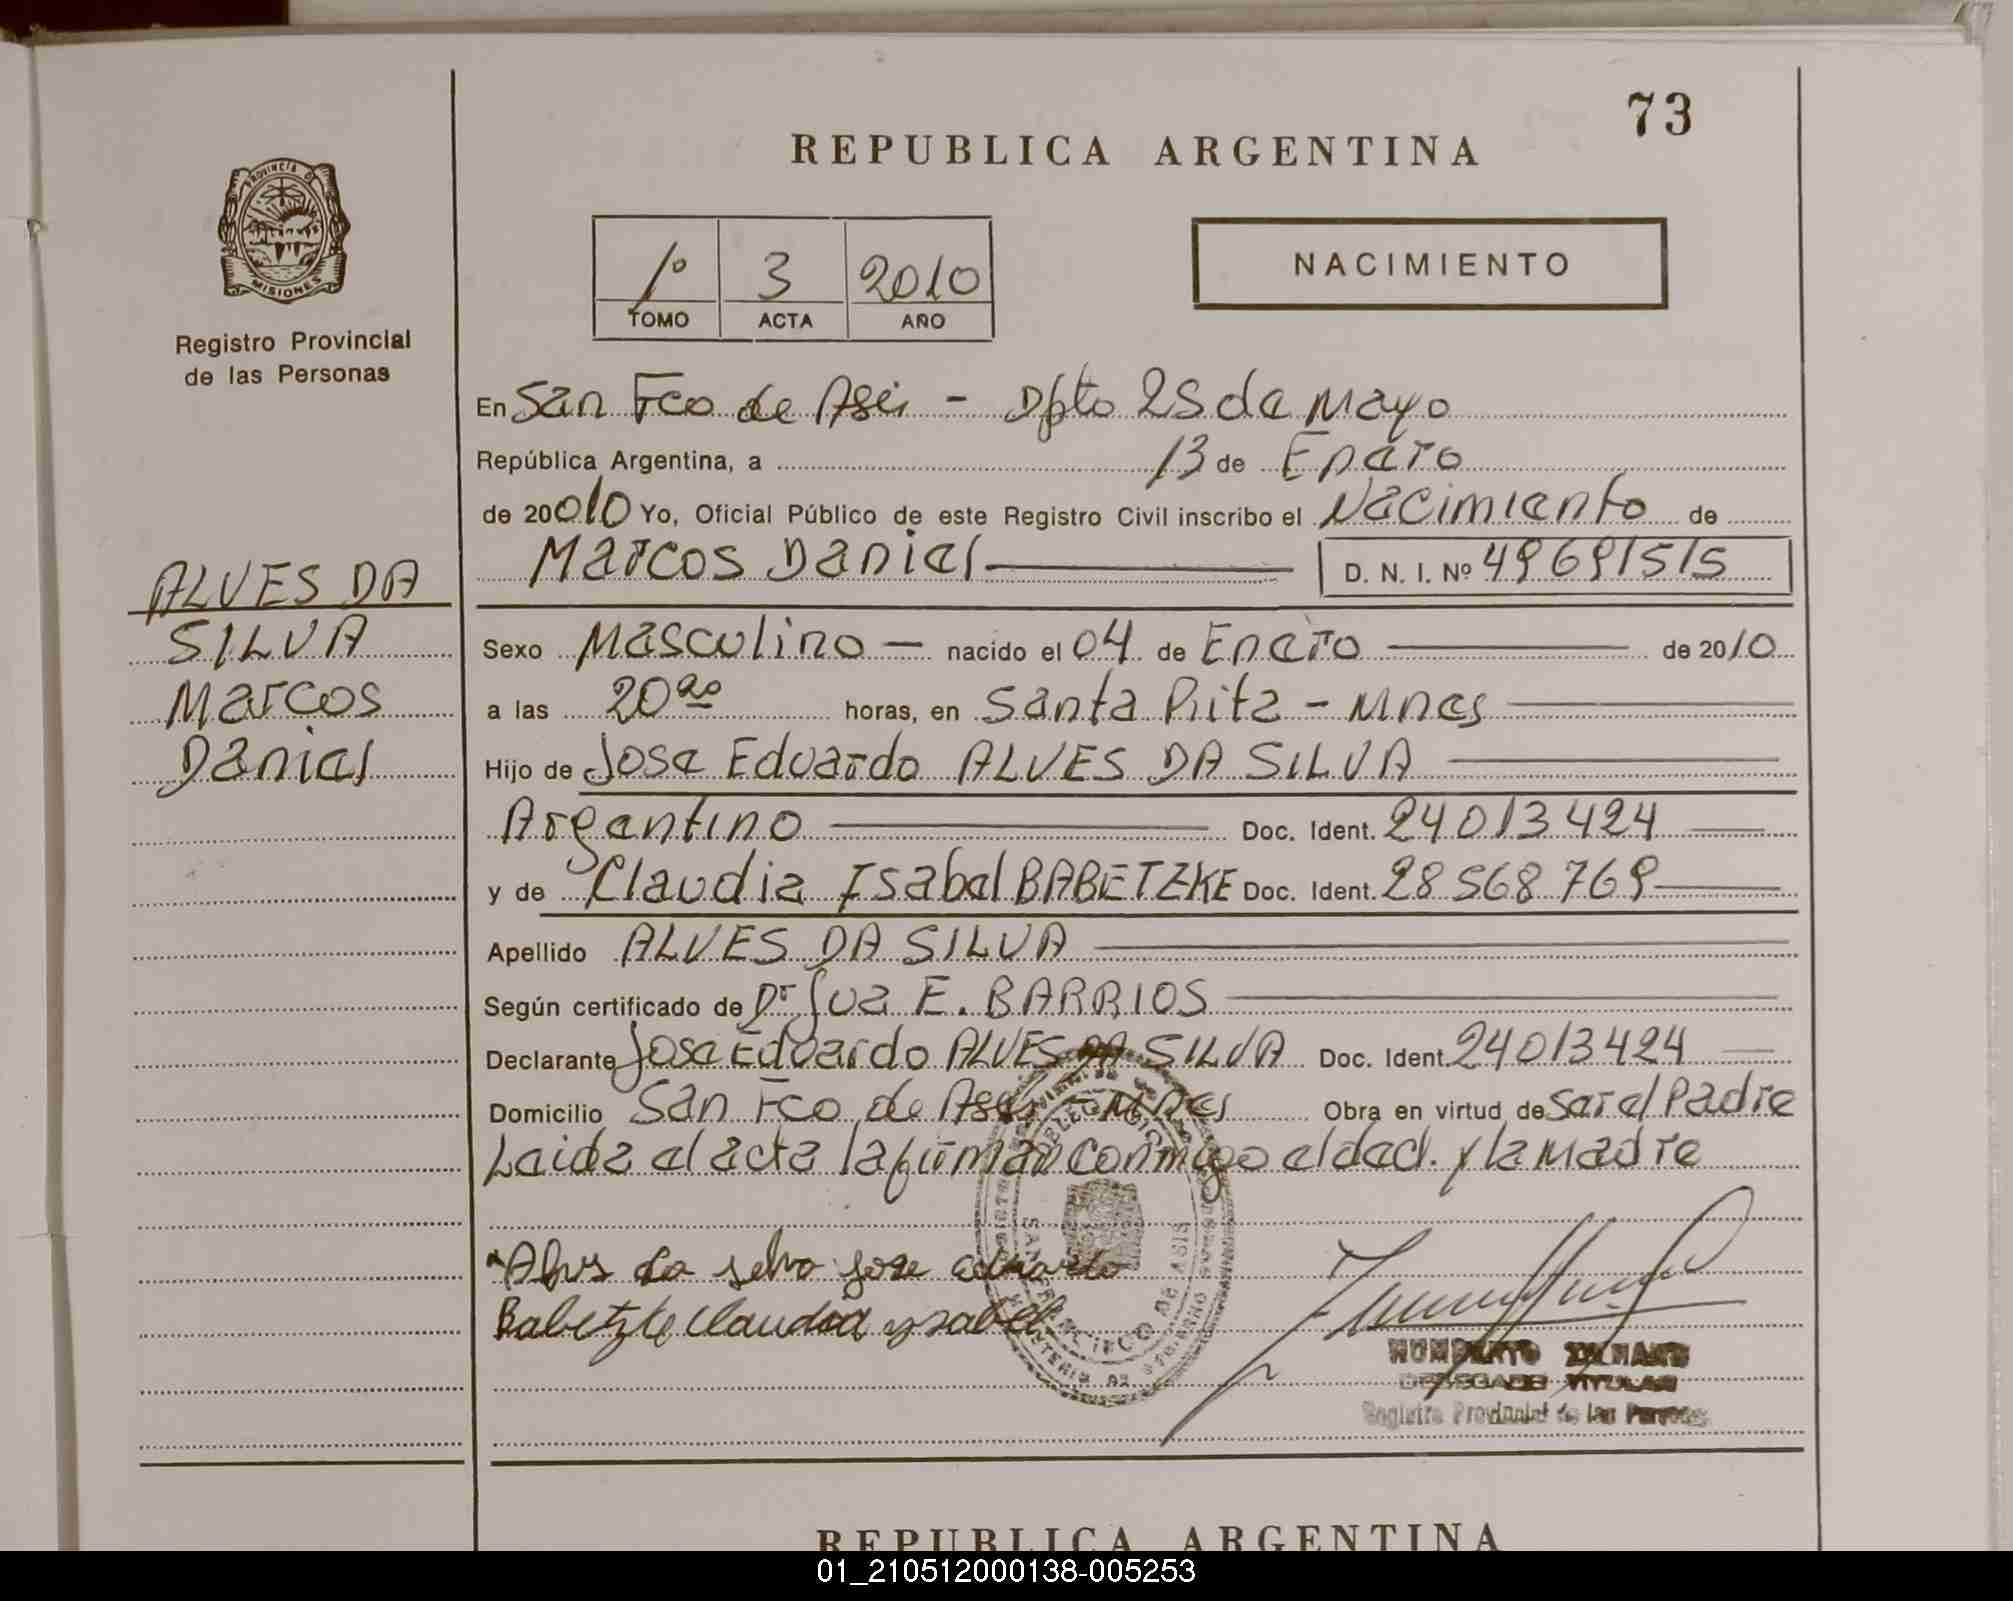 73
REPUBLICA ARGENTINA
PROVINCIA DE
MISIONES
Registro Provincial
de las Personas
1º 3 2010
TOMO ACTA AÑO
NACIMIENTO
En San Fco de Asis - Dpto 25 de Mayo
República Argentina, a 13 de Enero
de 20010 Yo, Oficial Público de este Registro Civil inscribo el Nacimiento de
Marcos Daniel D. N. I. Nº 49691515
ALVES DA
SILVA
Marcos
Daniel
Sexo Masculino nacido el 04 de Enero de 2010
a las 20 horas, en Santa Rita - Mnes
Hijo de Jose Eduardo ALVES DA SILVA
Argentino Doc. Ident. 24013424
y de Claudia Isabel BABETZKE Doc. Ident. 28568769
Apellido ALVES DA SILVA
Según certificado de Dr E. BARRIOS
Declarante Jose Eduardo ALVES DA SILVA Doc. Ident. 24013424
Domicilio San Fco de Asis - Mnes Obra en virtud de ser el Padre
Leida el acta la firman conmigo el decl. y la Madre
Alves da selva jose eduardo
Babetzke Claudia ysabel
SAN FRANCISCO DE ASIS
MINISTERIO DE GOBIERNO
HUMBERTO
DELEGADO TITULAR
Registro Provincial de las Personas
REPUBLICA ARGENTINA
01_210512000138-005253